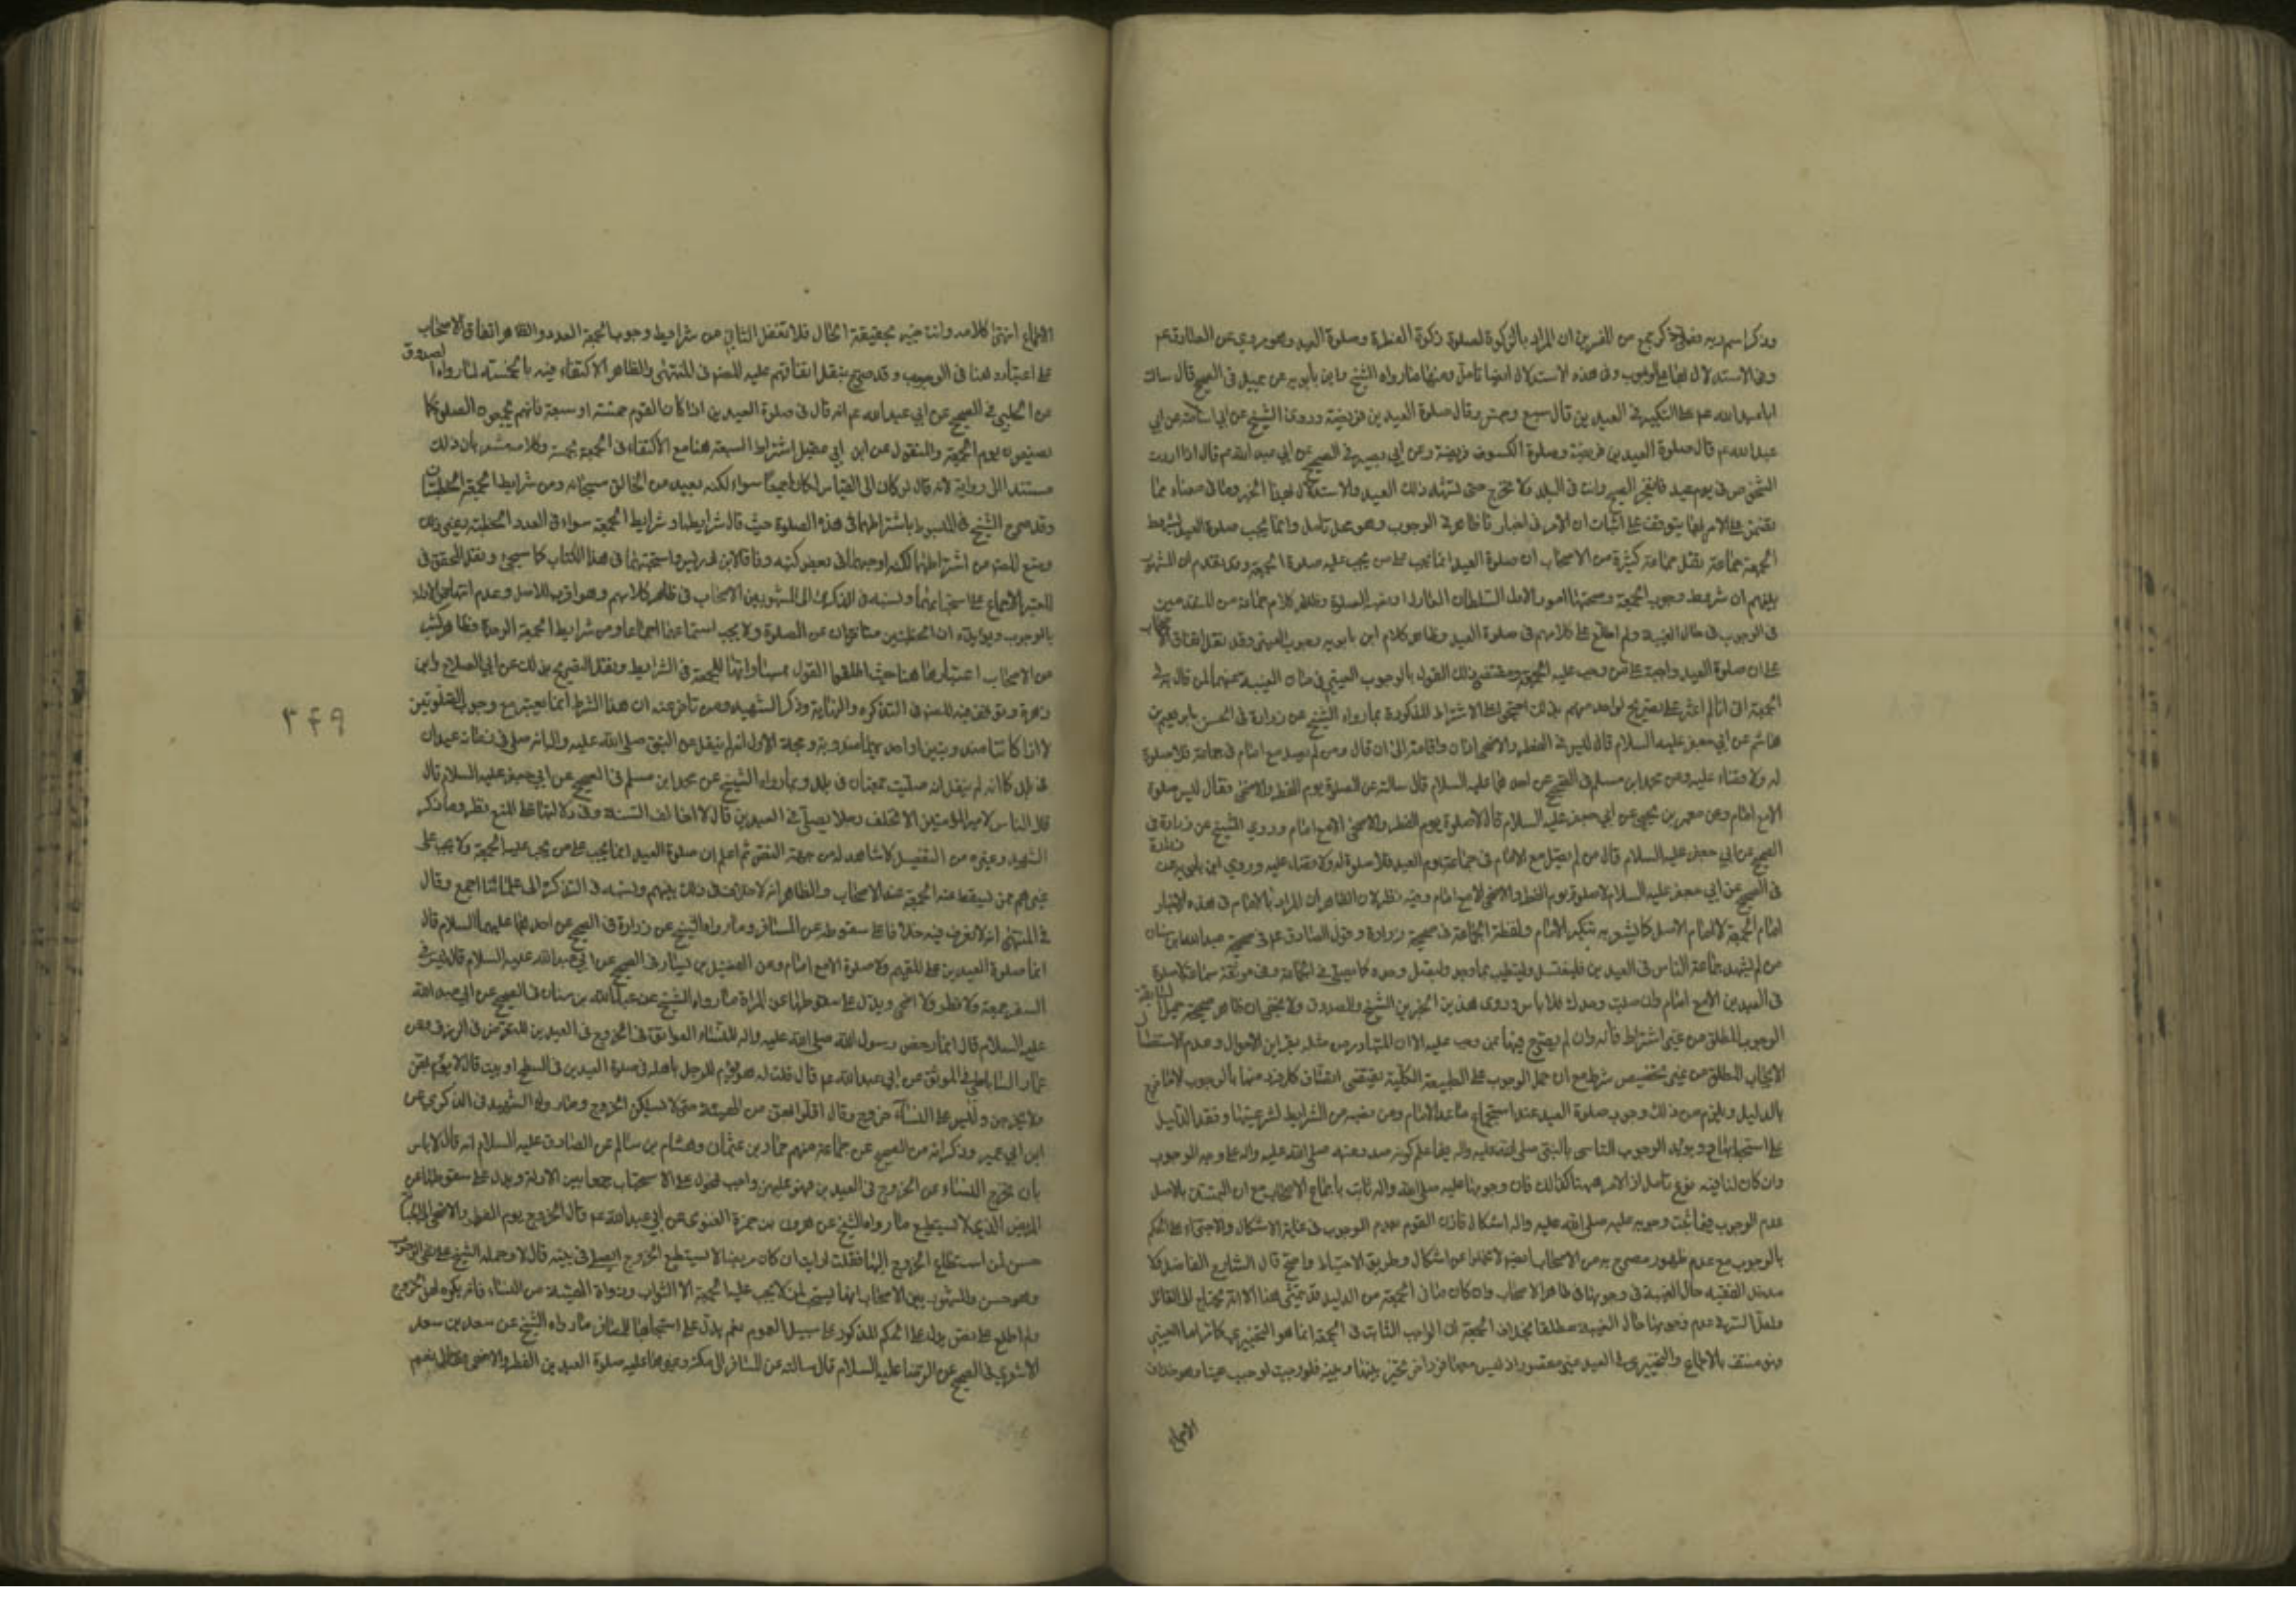 وذكر اسم ربه فصلى ذكر جمع من المفسرين ان المراد بالزكوة لصلوة زكوة الفطرة وصلوة العيد وهو مروي عن الصادق عم
وفي الاستدلال بها على الوجوب وفي هذه الاستدلال ايضا تامل ومنها ما رواه الشيخ وابن بابويه عن جميل في الصحيح قال سالت
ابا عبد الله عم عن التكبير في العيدين قال سبع وخمس وقال صلوة العيدين فريضة وروى الشيخ عن ابي اسامة عن ابي
عبد الله عم قال صلوة العيدين فريضة وصلوة الكسوف فريضة وعن ابي بصير في الصحيح عن ابي عبد الله عم قال اذا اردت
الشخوص في يوم عيد فانفجر الصبح وانت في البلد فلا تخرج حتى تشهد ذلك العيد والاستدلال بهذا الخبر وما في معناه مما
تضمن على الامر بها يتوقف على اثبات ان الامر في اخبارنا ظاهر في الوجوب وهو محل تامل وانما يجب صلوة العيد بشروط
الجمعة جماعة نقل جماعة كثيرة من الاصحاب ان صلوة العيد انما تجب على من يجب عليه صلوة الجمعة وقد تقدم ان المشهور
بينهم ان شروط وجوب الجمعة وصحتها امور الاول السلطان العادل او نصبه للصلوة وظاهر كلام جماعة من المتقدمين
في الوجوب في حال الغيبة ولم اطلع على كلامهم في صلوة العيد وظاهر كلام ابن بابويه وجوب العيني وقد نقل اتفاق الاصحاب
على ان صلوة العيد واجبة على من وجب عليه الجمعة ومقتضى ذلك القول بالوجوب العيني في زمان الغيبة عنهم لمن قال به في
الجمعة الا اني لم اعثر على تصريح لواحد منهم بذلك احتجوا على الاشتراط المذكورة بما رواه الشيخ عن زرارة في الحسن بابراهيم بن
هاشم عن ابي جعفر عليه السلام قال ليس في الفطر والاضحى اذان ولا اقامة الى ان قال ومن لم يصل مع امام في جماعة فلا صلوة
له ولا قضاء عليه وعن محمد ابن مسلم في الصحيح عن احدهما عليه السلام قال سالته عن الصلوة يوم الفطر والاضحى فقال ليس صلوة
الا مع امام وعن معمر بن يحيى عن ابي جعفر عليه السلام قال لا صلوة يوم الفطر والاضحى الا مع امام وروي الشيخ عن زرارة في
الصحيح عن ابي جعفر عليه السلام قال من لم يصل مع الامام في جماعة يوم العيد فلا صلوة له ولا قضاء عليه وروي ابن بابويه عن زرارة
في الصحيح عن ابي جعفر عليه السلام لا صلوة يوم الفطر والاضحى الا مع امام وفيه نظر لان الظاهر ان المراد بالامام في هذه الاخبار
امام الجمعة لا امام الاصل كما يشعر به تنكير الامام ولفظة الجماعة في صحيحة زرارة وقول الصادق عم في صحيحة عبد الله ابن سنان
من لم يشهد جماعة الناس في العيدين فليغتسل وليتطيب بما وجد وليصل وحده كما يصلي في الجماعة وفي موثقة سماعة لا صلوة
في العيدين الا مع امام وان صليت وحدك فلا باس وروى هذين الخبرين الشيخ والصدوق ولا يخفى ان ظاهر صحيحة جميل السابقة
الوجوب المطلق من غير اشتراط فانه وان لم يصرح فيها بمن وجب عليه الا ان المتبادر من مثله بقراين الاحوال وعدم الاستفصال
الايجاب المطلق من غير تخصيص شرط مع ان حمل الوجوب على الطبيعة الكلية يقتضى اتصاف كل فرد منها بالوجوب الا ما خرج
بالدليل ويلزم من ذلك وجوب صلوة العيد عند استجماع ما عدا الامام ومن نصبه من الشرايط لشرعيتها وفقد الدليل
على استحبابها ح ويؤيد الوجوب التاسى بالنبي صلى الله عليه واله فيما علم كونه صدر عنه صلى الله عليه واله على وجه الوجوب
وان كان لنا فيه نوع تامل اذ الامر ههنا كذلك فان وجوبها عليه صلى الله واله ثابت باجماع الاصحاب مع ان التمسك بالاصل
عدم الوجوب فيما ثبت وجوبه عليه صلى الله عليه واله اشكال فاذن القول بعدم الوجوب في غاية الاشكال والاجتراء على الحكم
بالوجوب مع عدم ظهور مصرح به من الاصحاب ايضا لا يخلوا عن اشكال وطريق الاحتياط واضح قال الشارح الفاضل ولا
مدخل للفقيه حال الغيبة في وجوبها في ظاهر الاصحاب وان كان ما في الجمعة من الدليل قد يتمشى هنا الا انه يحتاج الى القائل
ولعل السر في عدم وجوبها حال الغيبة مطلقا بخلاف الجمعة ان الواجب الثابت في الجمعة انما هو التخييري كما مر اما العيني
فهو منتف بالاجماع والتخييري في العيد غير متصور اذ ليس معها فرد اخر تخير بينها وبينه فلو وجبت لوجبت عينا وهو خلاف
الاجماع
الاجماع انتهى كلامه وانت خبير بحقيقة الحال فلا تغفل الثاني من شرايط وجوب الجمعة العدد والظاهر اتفاق الاصحاب
على اعتباره هنا في الوجوب وقد صرح بنقل اتفاقهم عليه المصنف في المنتهى والظاهر الاكتفاء فيه بالخمسة لما رواه الصدوق
عن الحلبي في الصحيح عن ابي عبد الله عم انه قال في صلوة العيدين اذا كان القوم خمسة او سبعة فانهم يجمعون الصلوة كما
يصنعون يوم الجمعة والمنقول عن ابن ابي عقيل اشتراط السبعة هنا مع الاكتفاء في الجمعة بخمسة وكلامه مشعر بان ذلك
مستند الى رواية لانه قال لو كان الى القياس لكانا جميعا سواء لكنه تعبد من الخالق سبحانه ومن شرايط الجمعة الخطبتان
وقد صرح الشيخ في المبسوط باشتراطهما في هذه الصلوة حيث قال شرايطها وشرايط الجمعة سواء في العدد والخطبة وغير ذلك
ومنع المصنف من اشتراطهما لكنه اوجبهما في بعض كتبه وفاقا لابن ادريس واستحبهما في هذا الكتاب كما سيجئ ونقل المحقق في
المعتبر الاجماع على استحبابهما ونسبه في الذكرى الى المشهور بين الاصحاب في ظاهر كلامهم وهو اقرب للاصل وعدم انتهاض الادلة
بالوجوب ويؤيده ان الخطبتين متاخرتان عن الصلوة ولا يجب استماعهما اجماعا ومن شرايط الجمعة الوحدة وظاهر كثير
من الاصحاب اعتبارها هنا حيث اطلقوا القول بمساواتها للجمعة في الشرايط ونقل التصريح بذلك عن ابي الصلاح وابن
زهرة وتوقف فيه المصنف في التذكره والنهاية وذكر الشهيد ومن تاخر عنه ان هذا الشرط انما يعتبر مع وجوب الصلوتين
لا اذا كانتا مندوبتين او احديهما مندوبة وحجة الاول انه لم ينقل عن النبي صلى الله عليه واله انه صلى في زمانه عيدان
في بلد كما انه لم ينقل انه صليت جمعتان في بلد وبما رواه الشيخ عن محمد ابن مسلم في الصحيح عن ابي جعفر عليه السلام قال
قال الناس لامير المؤمنين الا تخلف رجلا يصلي في العيدين قال لا اخالف السنة وفي دلالتها على المنع نظر وما ذكره
الشهيد وغيره من التفصيل لا شاهد له من جهة النص ثم اعلم ان صلوة العيد انما يجب على من يجب عليه الجمعة ولا يجب على
غيرهم ممن يسقط عنه الجمعة عند الاصحاب والظاهر انه لا خلاف في ذلك بينهم ونسبه في التذكرة الى علمائنا اجمع وقال
في المنتهى انه لا نعرف فيه خلافا على سقوطه عن المسافر وما رواه الشيخ عن زرارة في الصحيح عن احدهما عليهما السلام قال
انما صلوة العيدين على المقيم ولا صلوة الا مع امام وعن الفضيل بن يسار في الصحيح عن ابي عبد الله عليه السلام قال ليس في
السفر جمعة ولا فطر ولا اضحى ويدل على سقوطها عن المراة ما رواه الشيخ عن عبد الله بن سنان في الصحيح عن ابي عبد الله
عليه السلام قال انما رخص رسول الله صلى الله عليه واله للنساء العواتق في الخروج في العيدين للتعرض في الرزق وعن
عمار الساباطي في الموثق عن ابي عبد الله عم قال قلت له هل يؤم الرجل باهله في صلوة العيدين في السطح او بيت قال لا يؤم بهن
ولا يخرجن وليس على النساء خروج وقال اقلوا لهن من الهيئة حتى لا يسئلن الخروج وما رواه الشهيد في الذكرى عن
ابن ابي عمير وذكر انه من الصحيح عن جماعة منهم حماد بن عثمان وهشام بن سالم عن الصادق عليه السلام انه قال لا باس
بان تخرج النساء عن الخروج في العيدين فهو عليهن واجب محمول على الاستحباب جمعا بين الادلة ويدل على سقوطها عن
المريض الذي لا يستطيع ما رواه الشيخ عن هرون بن حمزة الغنوى عن ابي عبد الله عم قال الخروج يوم الفطر والاضحى الى الجبانة
حسن لمن استطاع الخروج اليها فقلت ارايت ان كان مريضا لا يستطيع الخروج ايصلي في بيته قال لا وحمله الشيخ على نفي الوجوب
وهو حسن والمشهور بين الاصحاب انها يستحب لمن لا يجب عليه الجمعة الا الشواب وذوات الهيئة من النساء فانه يكره لهن الخروج
ولم اطلع على نص يدل على الحكم المذكور على سبيل العموم نعم يدل على استحبابها للمسافر ما رواه الشيخ عن سعد بن سعد
الاشعري في الصحيح عن الرضا عليه السلام قال سالته عن المسافر الى مكة وغيرها عليه صلوة العيدين الفطر والاضحى فقال نعم
۳۴۹